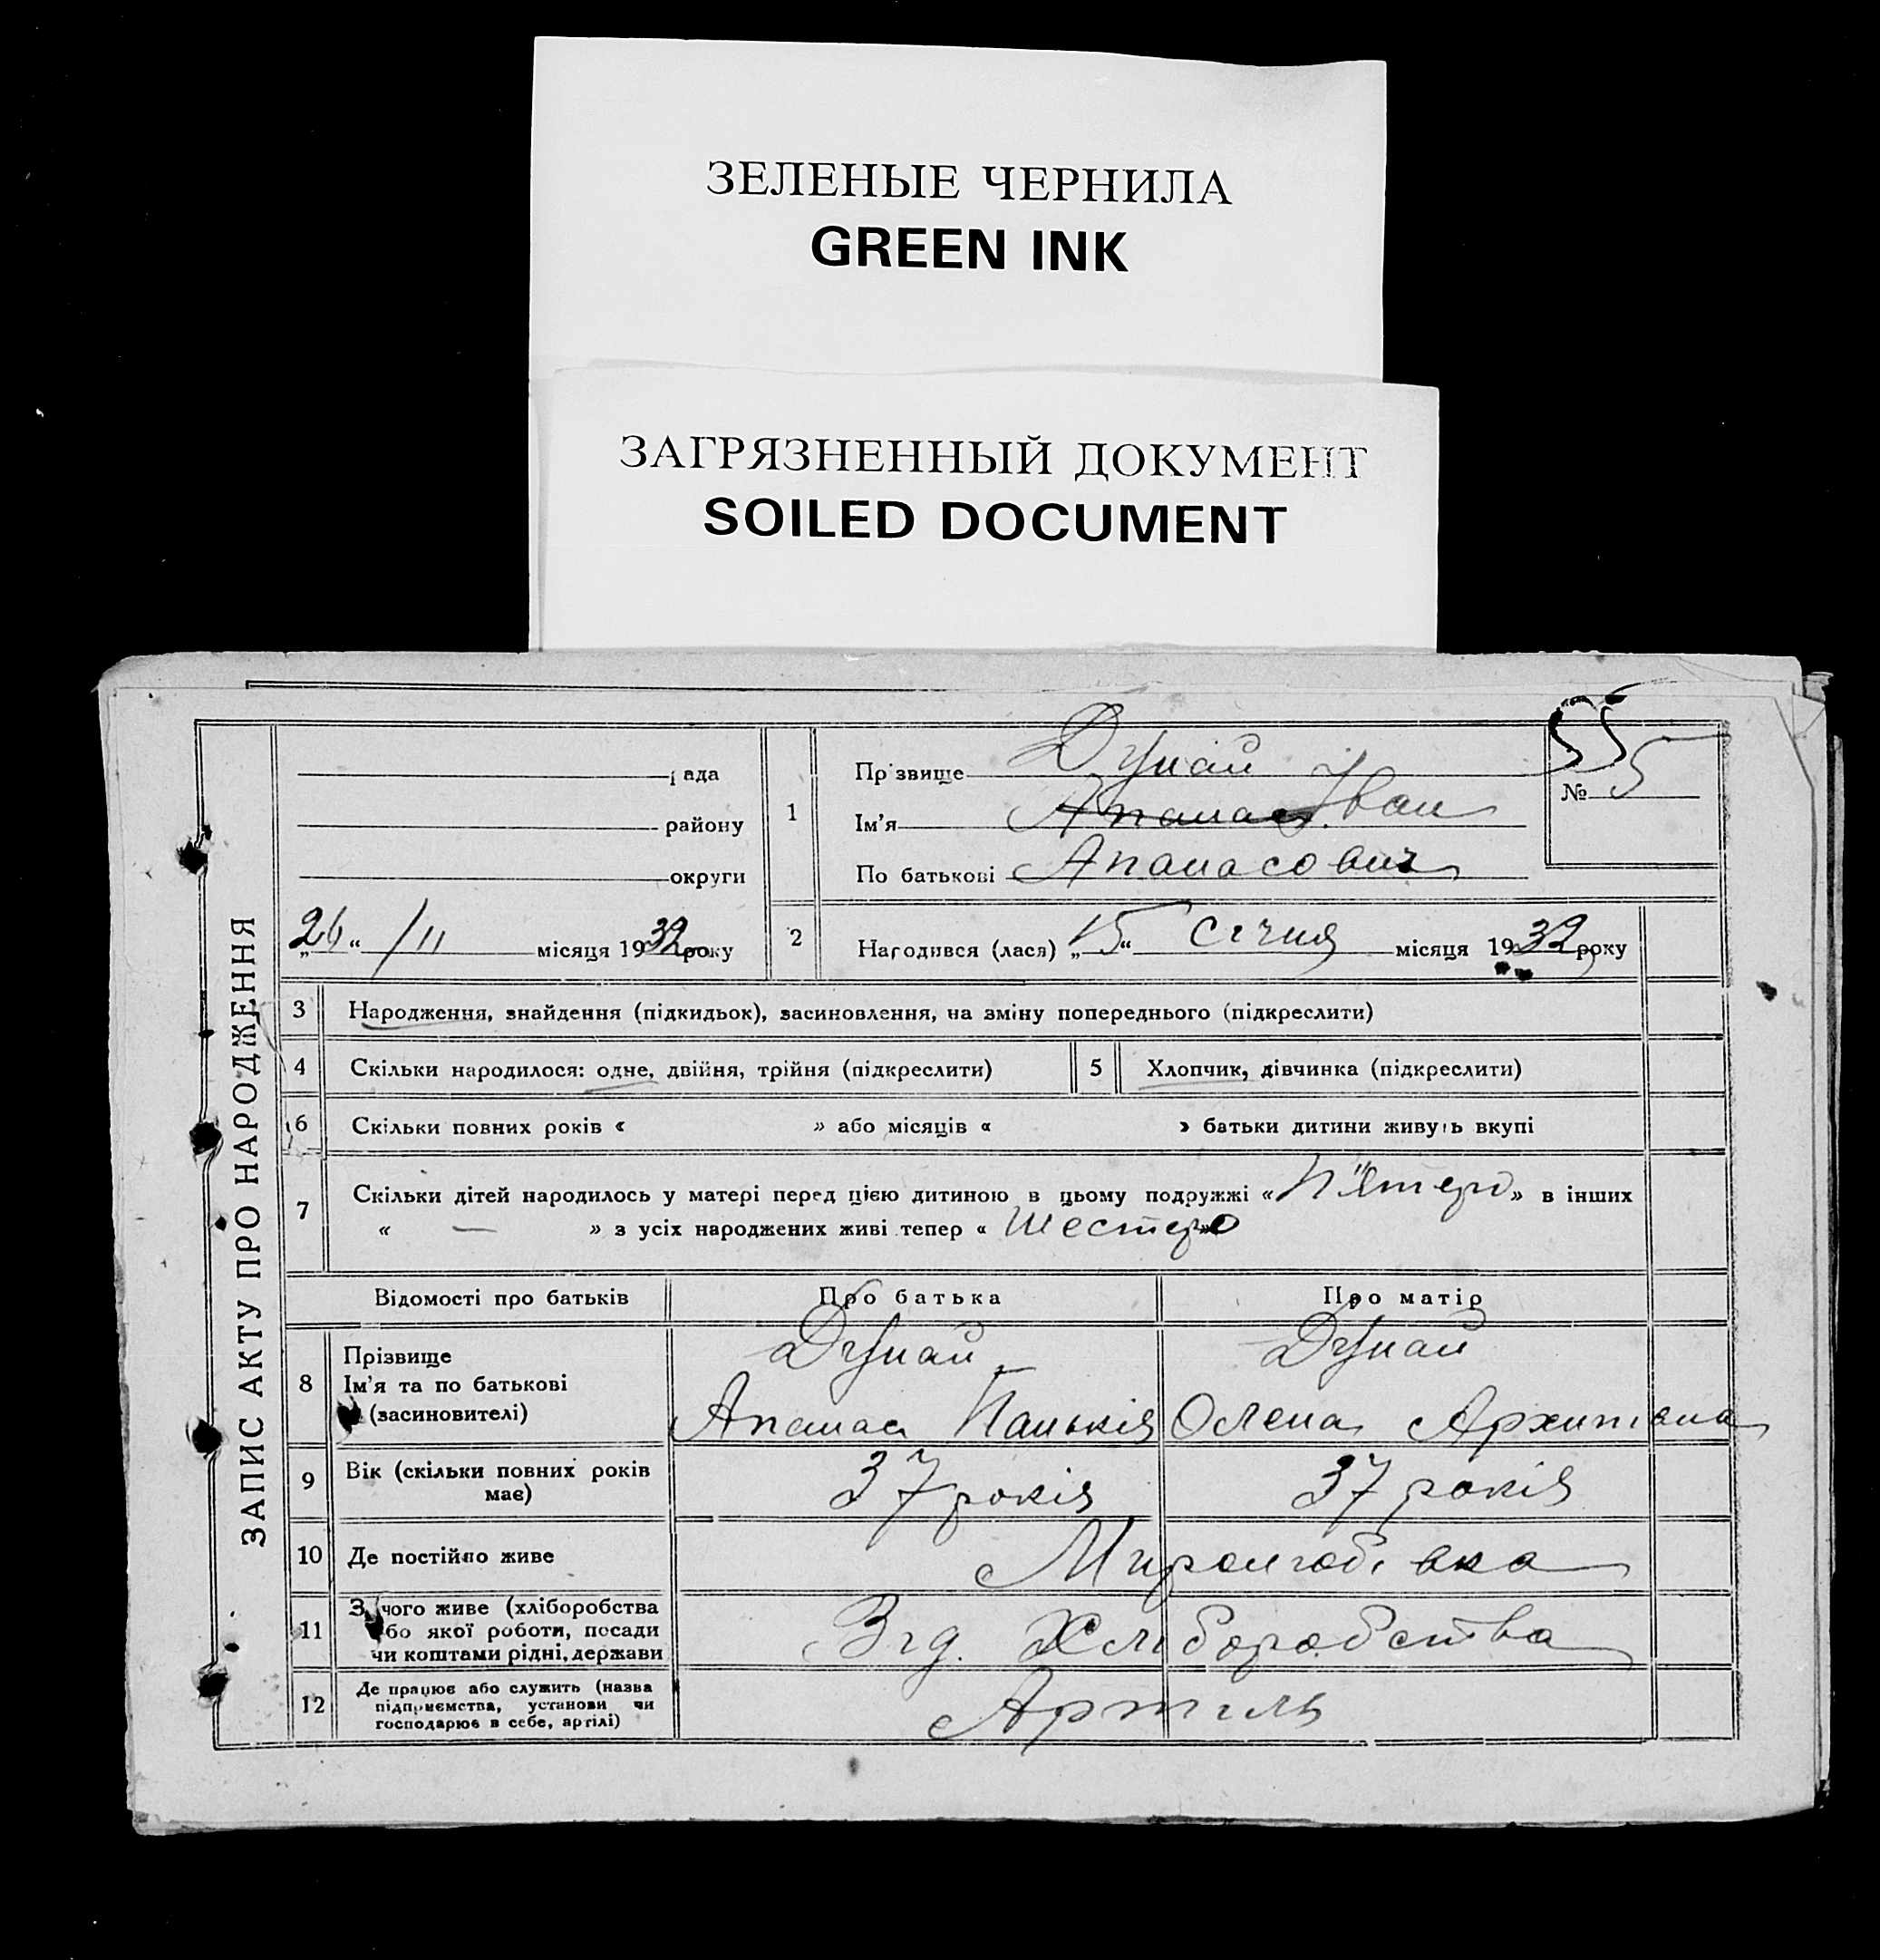 ЗЕЛЕНЫЕ ЧЕРНИЛА
GREEN INK
ЗАГРЯЗНЕННЫЙ ДОКУМЕНТ
SOILED DOCUMENT
ЗАПИС АКТУ ПРО НАРОДЖЕННЯ
рада
району
округи
„26“ /II місяця 1932 року
55
№ 5
1 Прізвище Дунай
Ім'я Апанас Іван
По батькові Апанасович
2 Народився (лася) „15“ Січня місяця 1932 року
3 Народження, знайдення (підкидьок), засиновлення, на зміну попереднього (підкреслити)
4 Скільки народилося: одне, двійня, трійня (підкреслити) 5 Хлопчик, дівчинка (підкреслити)
6 Скільки повних років « » або місяців « » батьки дитини живуть вкупі
7 Скільки дітей народилось у матері перед цією дитиною в цьому подружжі «П'ятеро» в інших
« — » з усіх народжених живі тепер « Шестеро »
Відомості про батьків Про батька Про матір
8 Прізвище Дунай Дунай
Ім'я та по батькові
(засиновителі) Апанас Паньків Олена Архипівна
9 Вік (скільки повних років
має) 37 років 37 років
10 Де постійно живе
11 З чого живе (хліборобства
або якої роботи, посади
чи коштами рідні, держави Хліборобства
12 Де працює або служить (назва
підприємства, установи чи
господарює в себе, артілі) Артіль